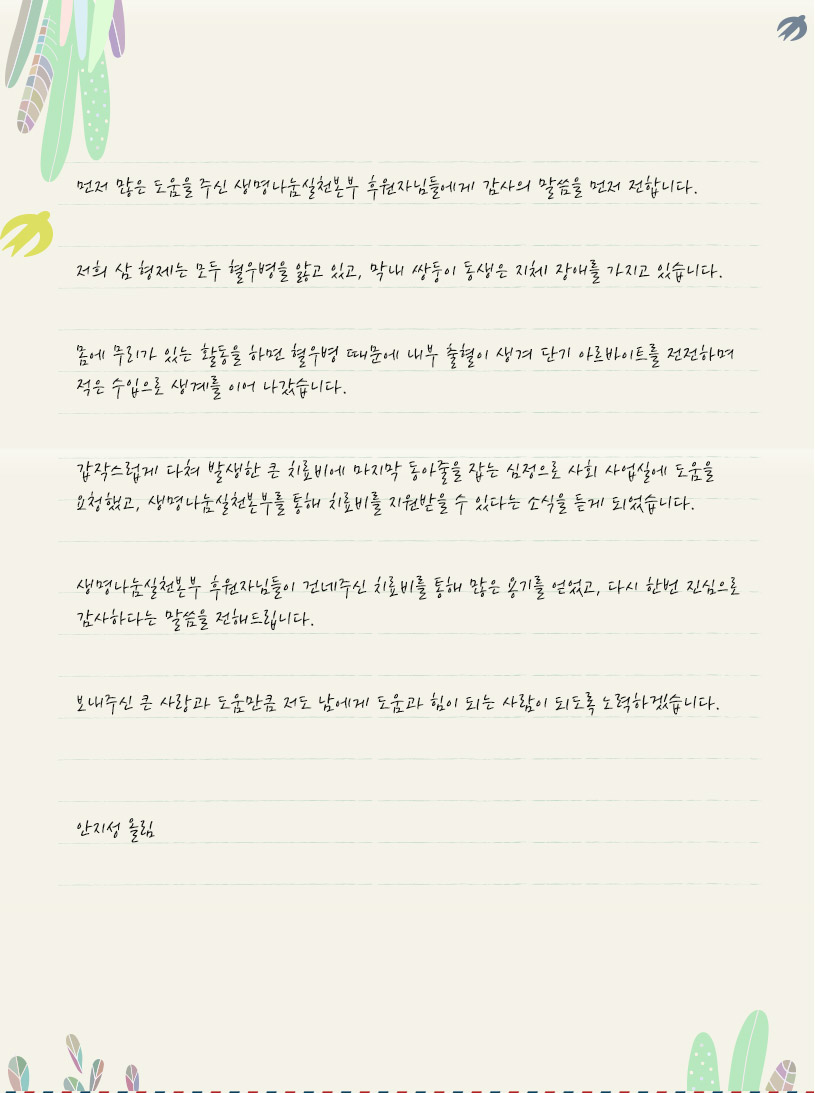 먼저 많은 도움을 주신 생명나눔실천본부 후원자님들에게 감사의 말씀을 먼저 전합니다.
저희 삼 형제는 모두 혈우병을 앓고 있고, 막내 쌍둥이 동생은 지체 장애를 가지고 있습니다.
몸에 무리가 있는 활동을 하면 혈우병 때문에 내부 출혈이 생겨 단기 아르바이트를 전전하며
적은 수입으로 생계를 이어 나갔습니다.
갑작스럽게 다쳐 발생한 큰 치료비에 마지막 동아줄을 잡는 심정으로 사회 사업실에 도움을
요청했고, 생명나눔실천본부를 통해 치료비를 지원받을 수 있다는 소식을 듣게 되었습니다.
생명나눔실천본부 후원자님들이 건네주신 치료비를 통해 많은 용기를 얻었고, 다시 한번 진심으로
감사하다는 말씀을 전해드립니다.
보내주신 큰 사랑과 도움만큼 저도 남에게 도움과 힘이 되는 사람이 되도록 노력하겠습니다.
안지성 올림